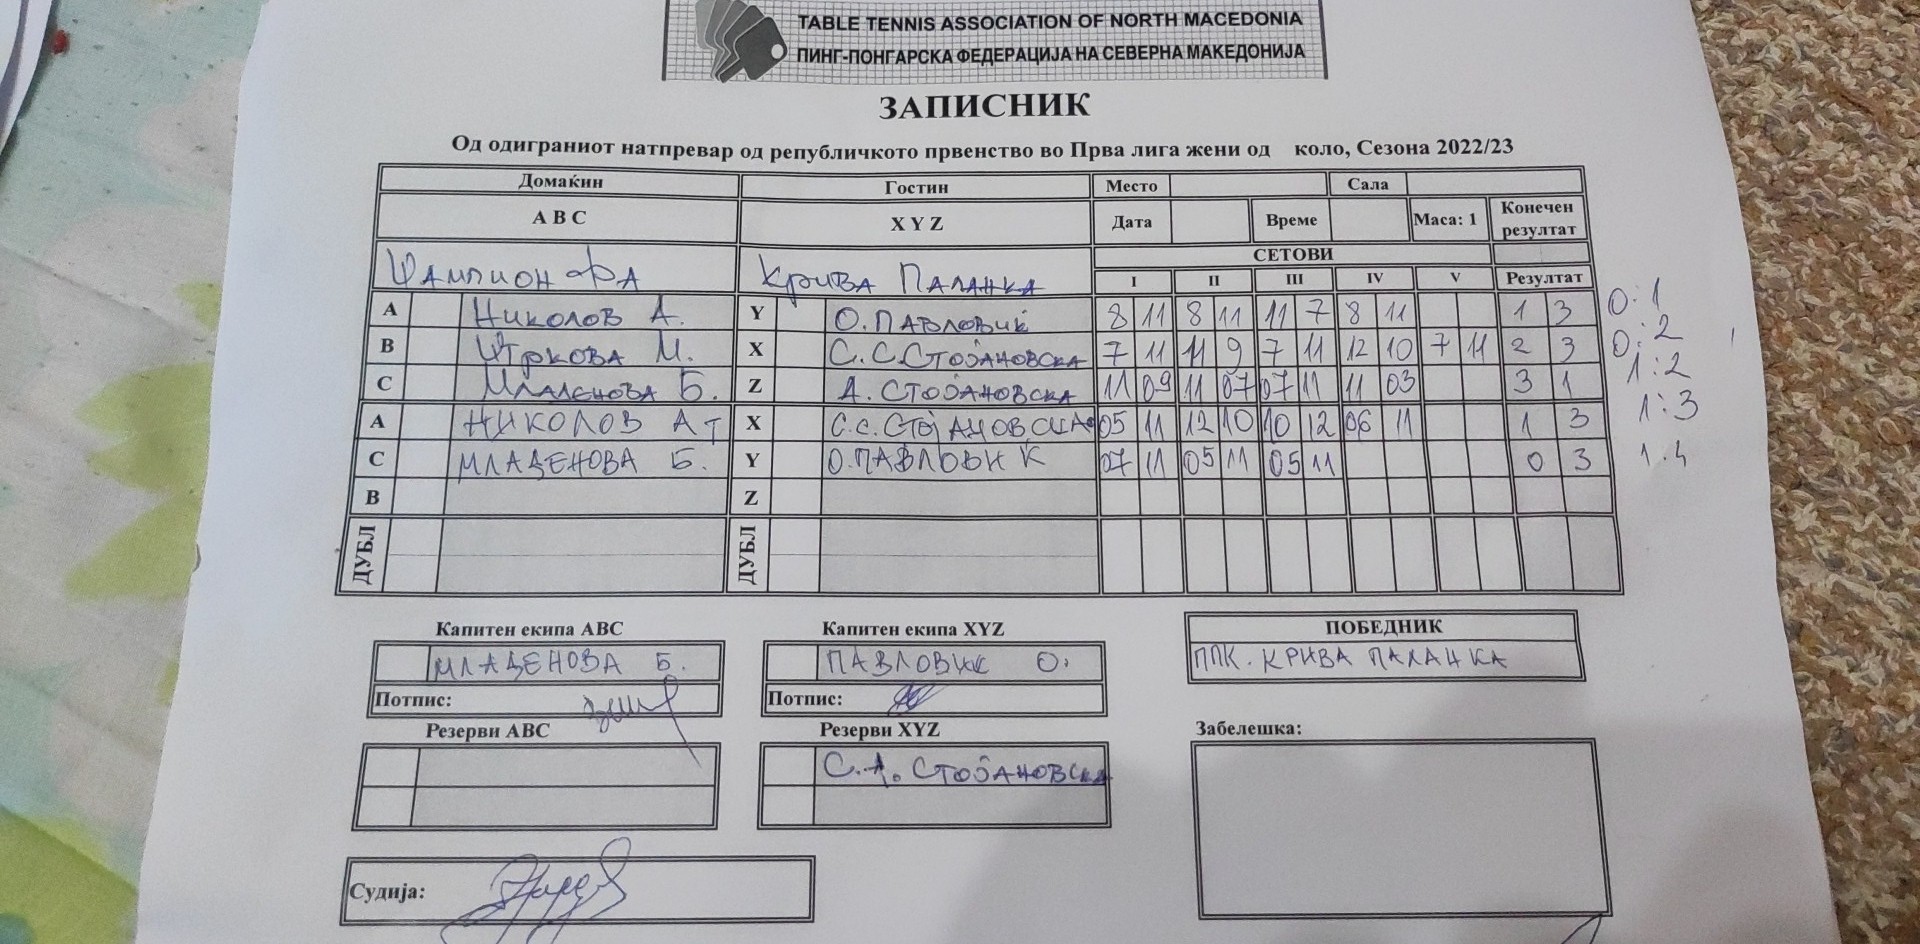 TABLE TENNIS ASSOCIATION OF NORTH MACEDONIA
ПИНГ-ПОНГАРСКА ФЕДЕРАЦИЈА НА СЕВЕРНА МАКЕДОНИЈА
ЗАПИСНИК
Од одиграниот натпревар од републичкото првенство во Прва лига жени од коло, Сезона 2022/23
Домаќин Гостин Место Сала
A B C X Y Z Дата Време Маса: 1 Конечен резултат
СЕТОВИ
Шампион ФА Крива Паланка I II III IV V Резултат
A Николов А. Y О. Павловиќ 8 11 8 11 11 7 8 11 1 3 0:1
B Штркова М. X С.С.Стојановска 7 11 11 9 7 11 12 10 7 11 2 3 0:2
C Младенова Б. Z А. Стојановска 11 09 11 07 07 11 11 03 3 1 1:2
A НИКОЛОВ А Т X С.С. СТОЈАНОВСКА 05 11 12 10 10 12 06 11 1 3 1:3
C МЛАДЕНОВА Б. Y О.ПАВЛОВИК 07 11 05 11 05 11 0 3 1:4
B Z
ДУБЛ ДУБЛ
Капитен екипа ABC Капитен екипа XYZ ПОБЕДНИК
МЛАДЕНОВА Б. ПАВЛОВИК О. ППК. КРИВА ПАЛАНКА
Потпис: Потпис:
Резерви ABC Резерви XYZ Забелешка:
С.А. Стојановска
Судија: